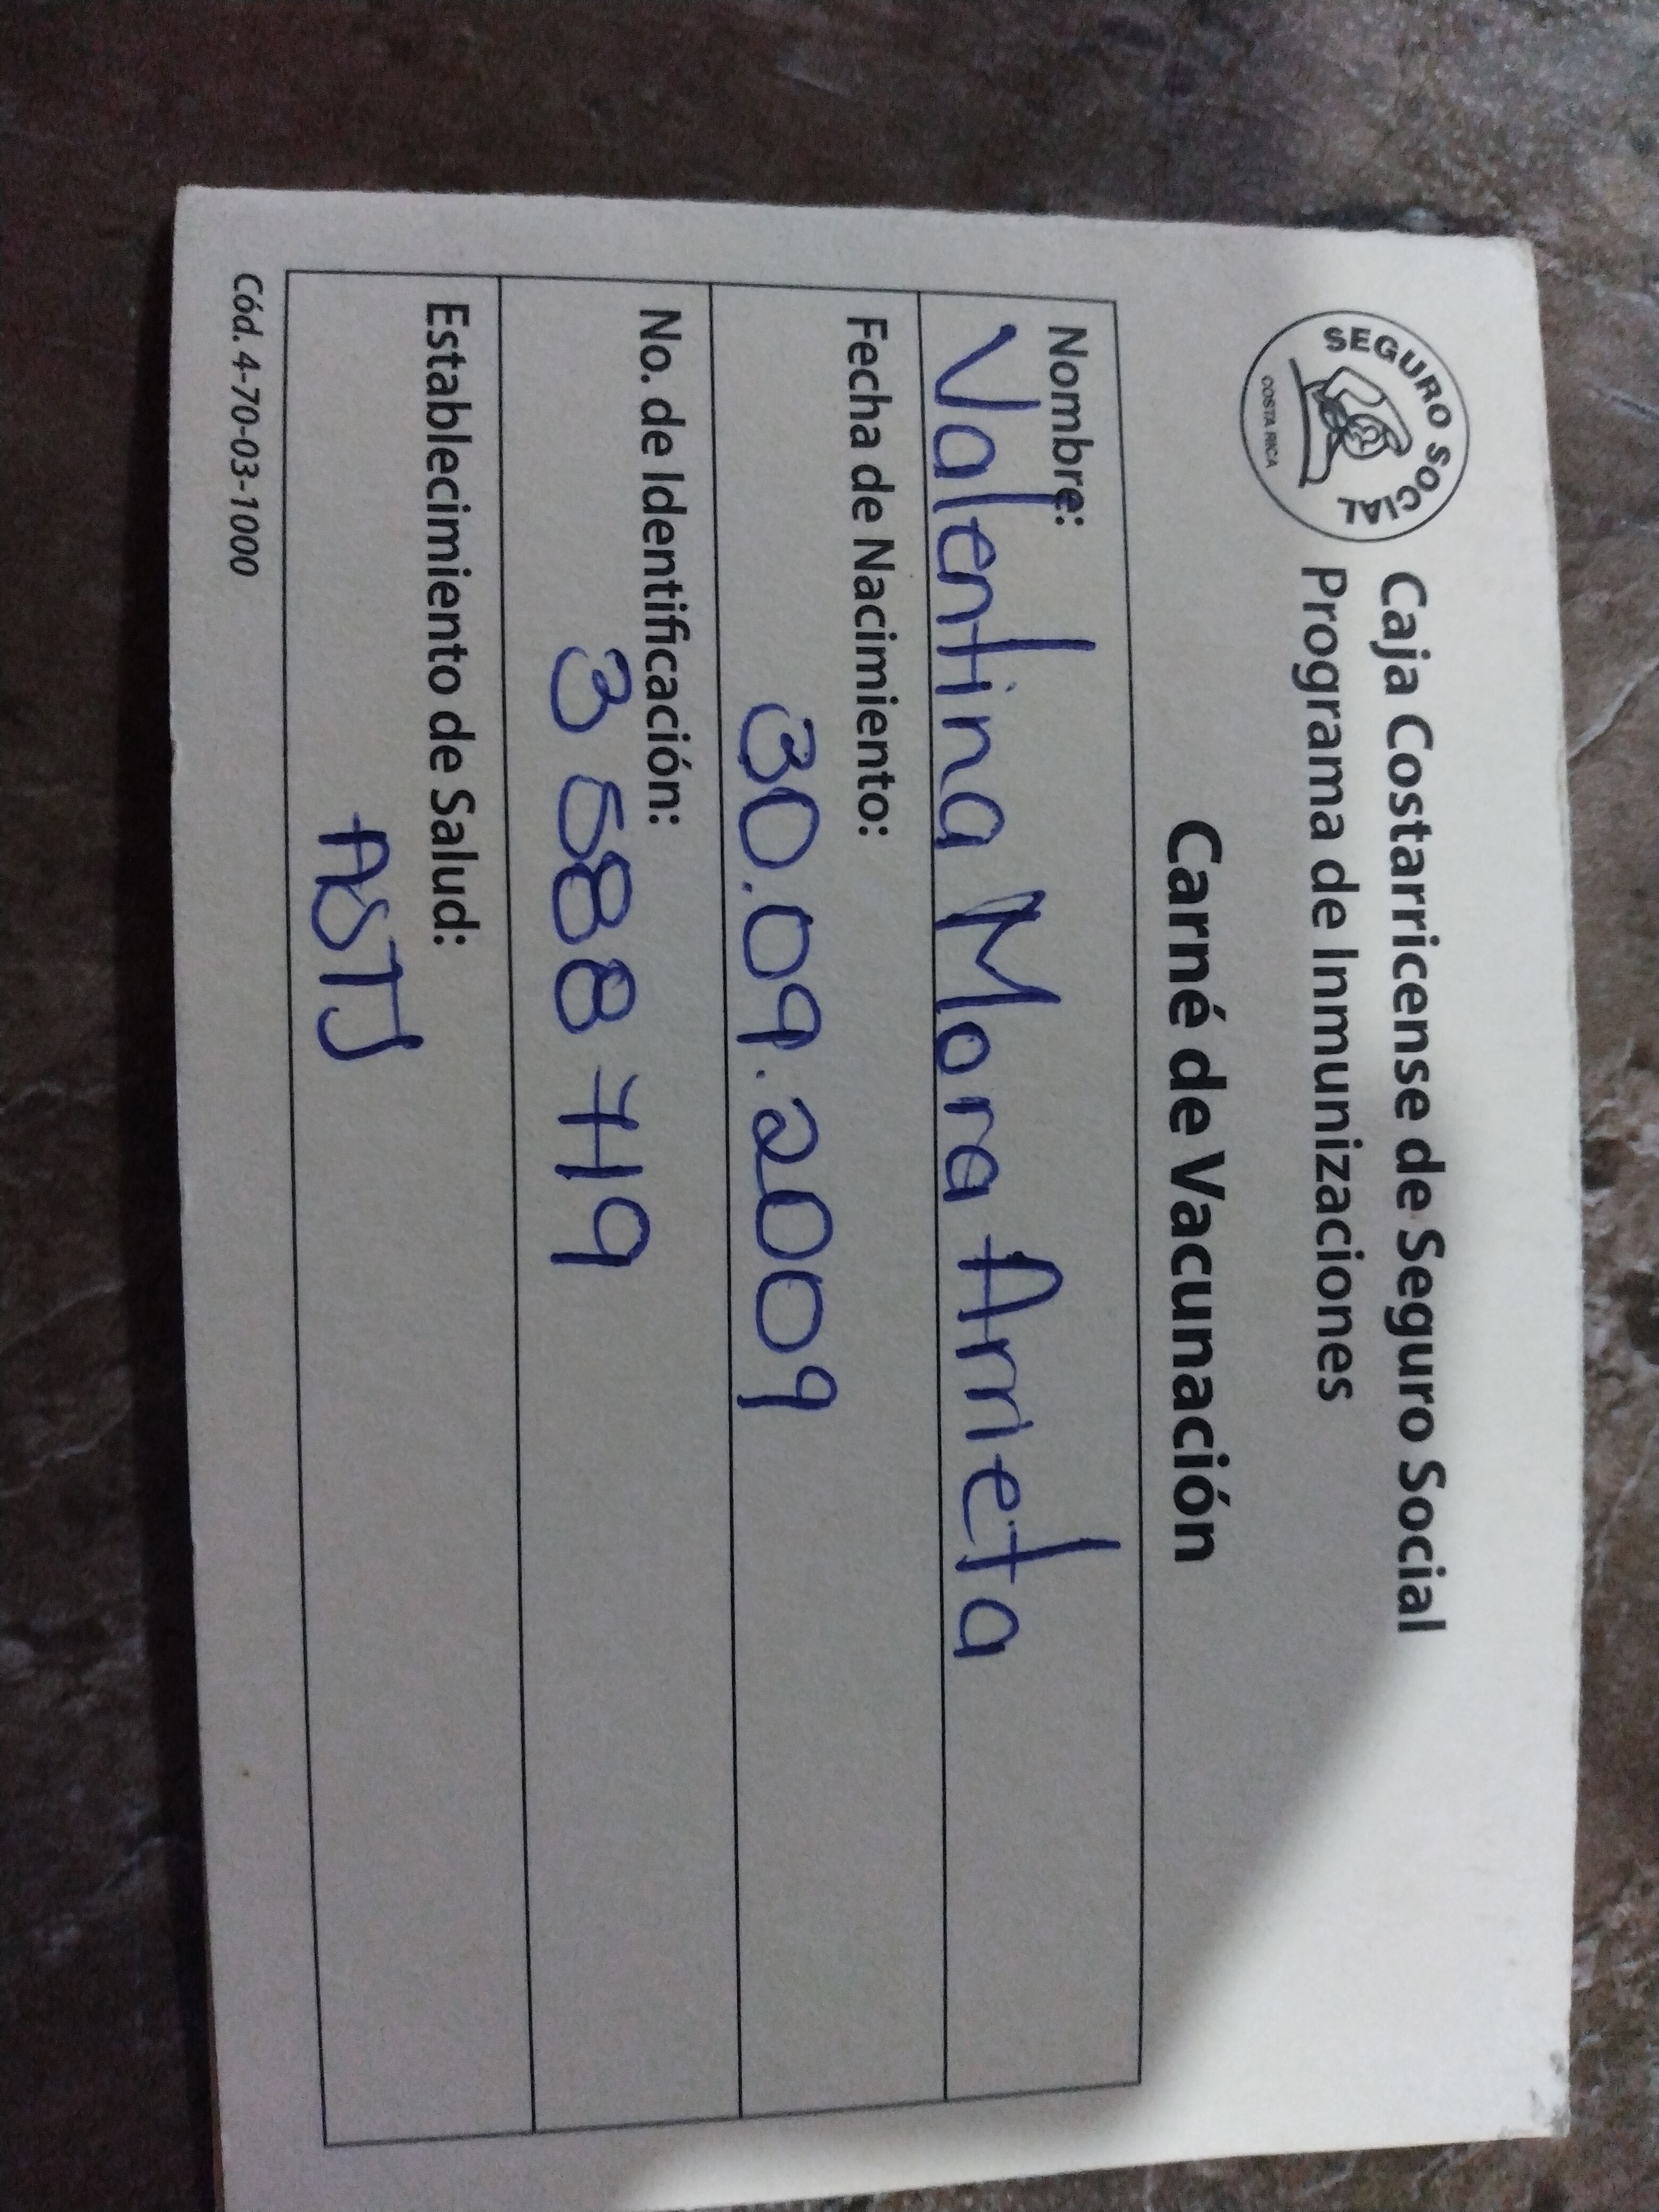 SEGURO SOCIAL
COSTA RICA
Caja Costarricense de Seguro Social
Programa de Inmunizaciones
Carné de Vacunación
Nombre:
Valentina Mora Arrieta
Fecha de Nacimiento:
30.09.2009
No. de Identificación:
3 588 719
Establecimiento de Salud:
ASTJ
Cód. 4-70-03-1000